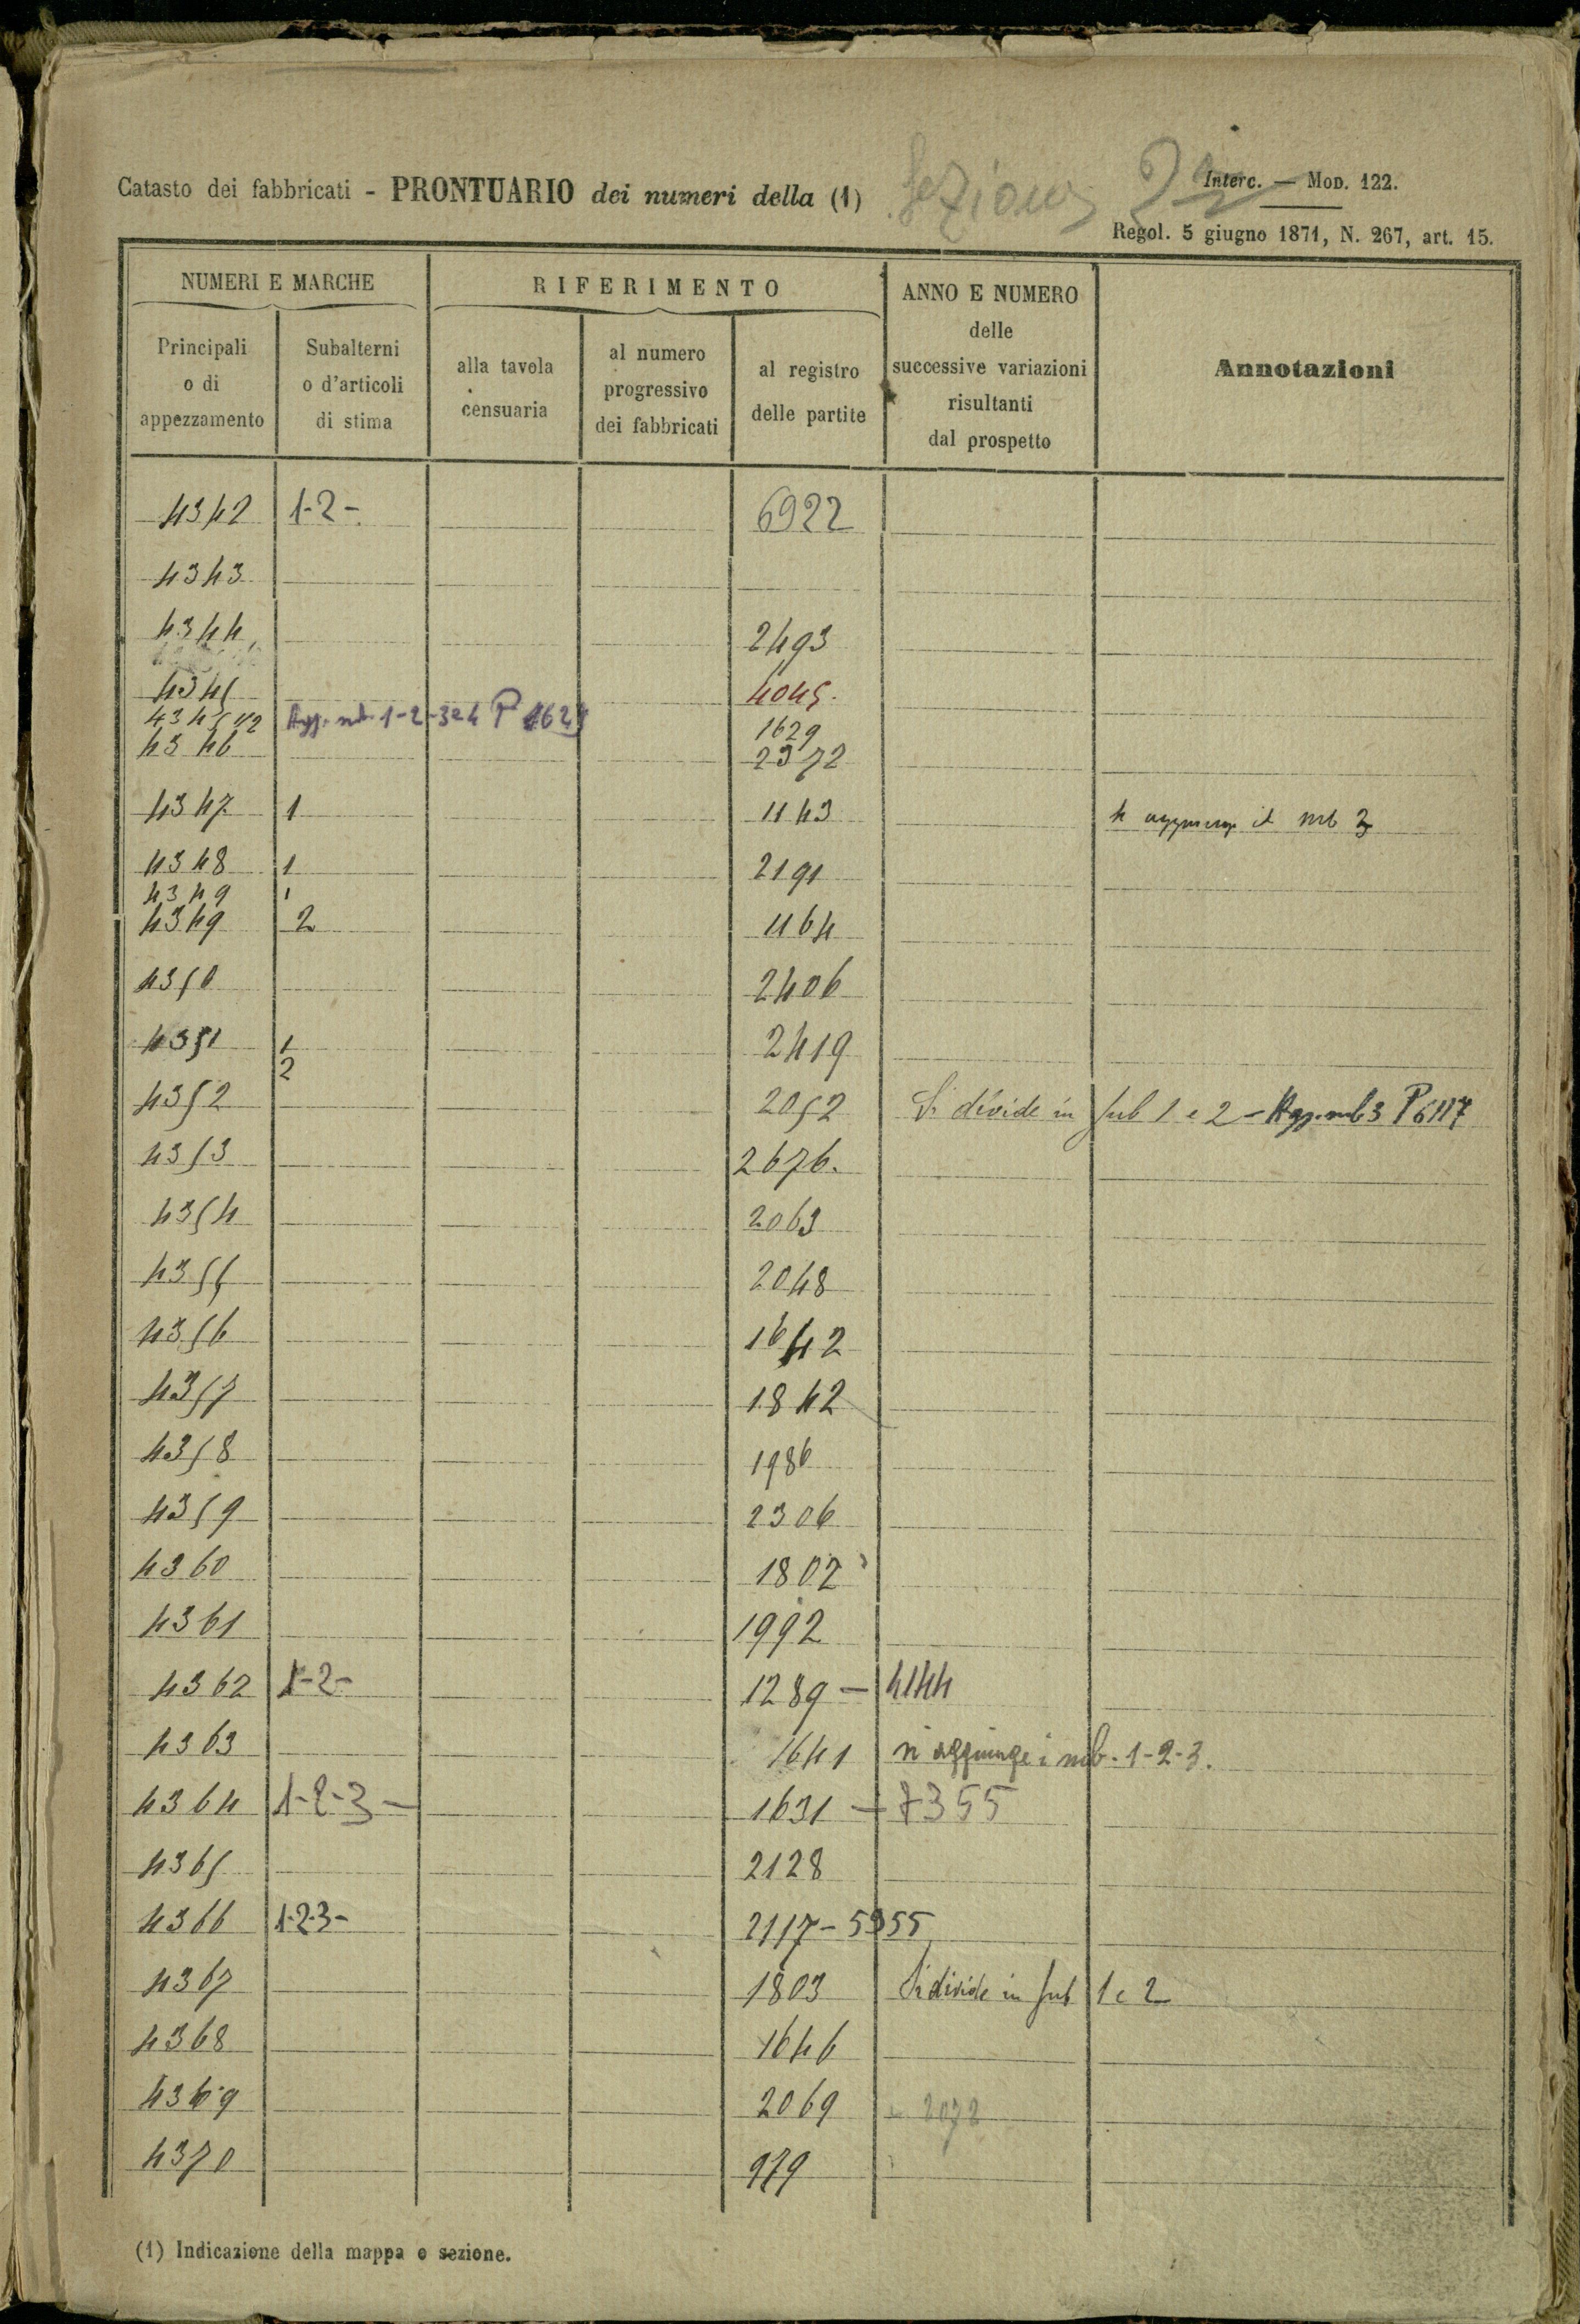 Catasto dei fabbricati - PRONTUARIO dei numeri della (1) Sezione
Interc. — MOD. 122.
Regol. 5 giugno 1871, N. 267, art. 15.
NUMERI E MARCHE
RIFERIMENTO
ANNO E NUMERO delle successive variazioni risultanti dal prospetto
Annotazioni
Principali o di appezzamento
Subalterni o d'articoli di stima
alla tavola censuaria
al numero progressivo dei fabbricati
al registro delle partite
4342 1-2- 6922
4343
4344 2493
4345 4045.
4345 1/2 Agg. sub. 1-2-3e4 P 1629 1629
4346 2372
4347 1 1143 si aggiunge il sub 3
4348 1 2191
4349 1
4349 2 1164
4350 2406
4351 1 2419
2
4352 2052 Si divide in sub 1 e 2 - Agg. sub 3 P 6117
4353 2676.
4354 2063
4355 2048
4356 1642
4357 1842
4358 1986
4359 2306
4360 1807
4361 1992
4362 1-2- 1289 - 4144
4363 1641 si aggiunge i sub. 1-2-3.
4364 1-2-3- 1631 - 7355
4365 2128
4366 1-2-3- 2117 - 5955
4367 1803 Si divide in sub 1 e 2
4368 1646
4369 2069 - 2072
4370 979
(1) Indicazione della mappa o sezione.